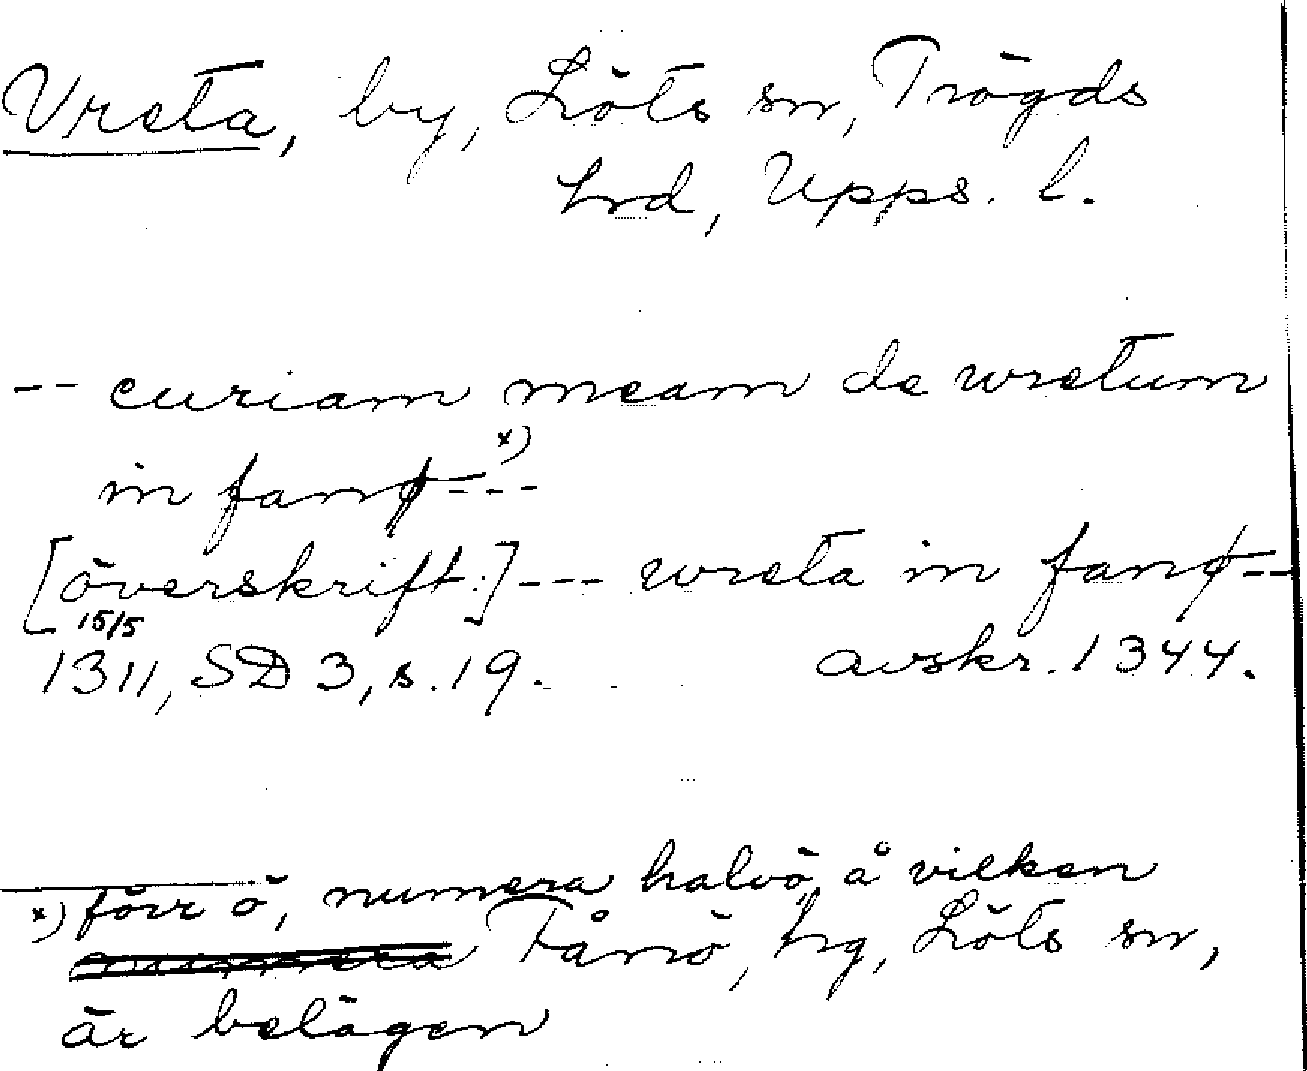 Vreta, by, Löts sn, Trögds
hrd, Upps. l.
-- curiam meam de wretum
in fanø x) ---
[överskrift:] --- wreta in fanø --
15/5
1311, SD 3, s. 19. avskr. 1344.
x) förr ö, numera halvö, å vilken
Fånö, hg, Löts sn,
är belägen